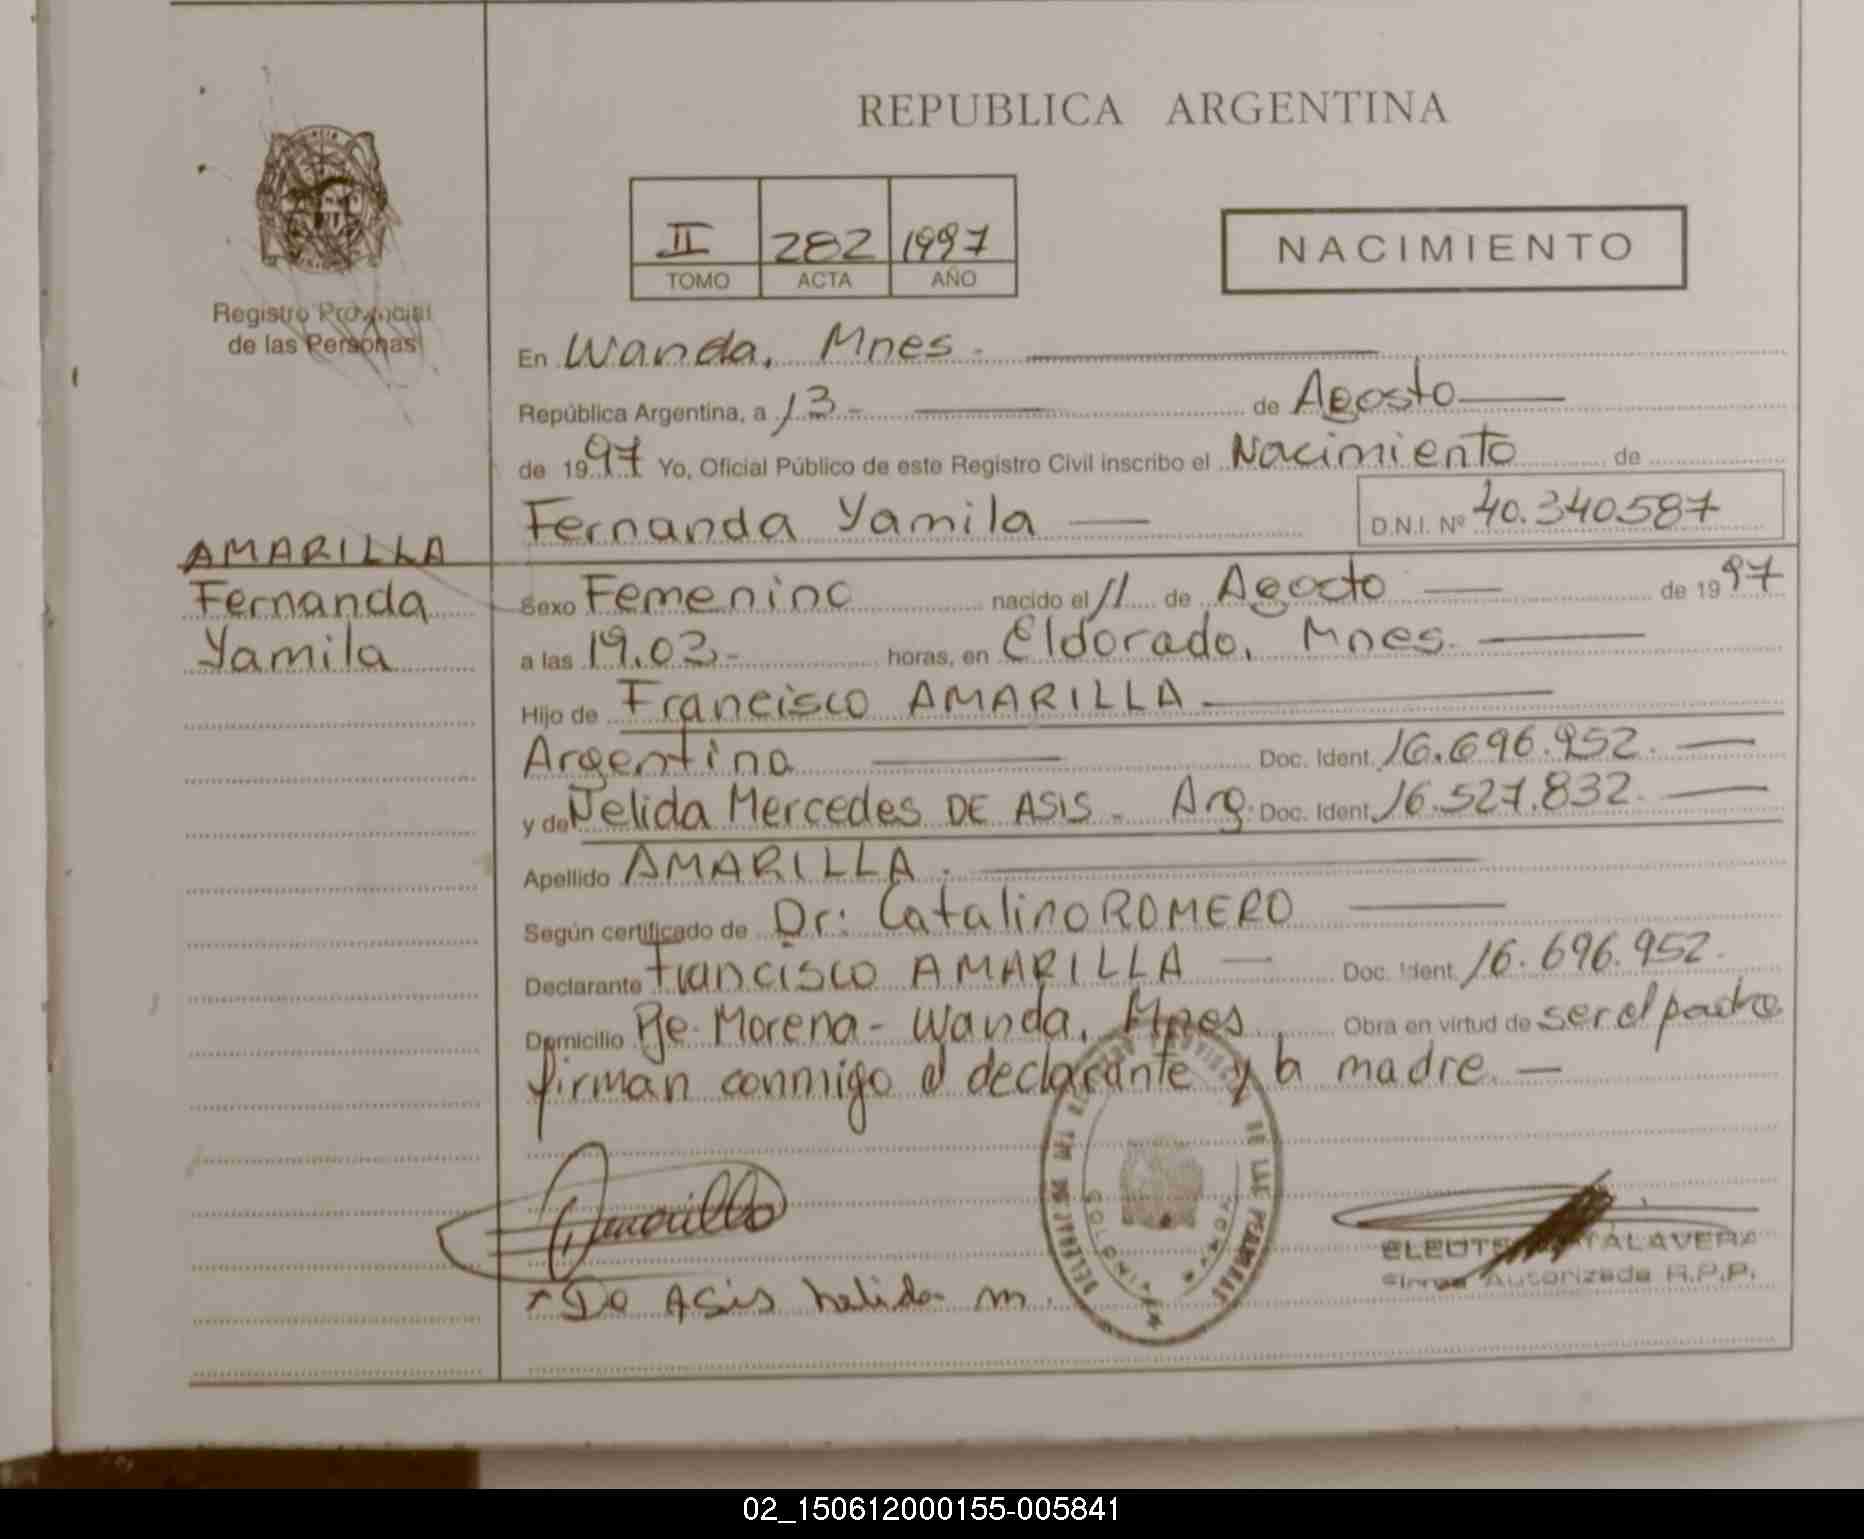 REPUBLICA ARGENTINA
II 282 1997
TOMO ACTA AÑO
NACIMIENTO
Registro Provincial
de las Personas
AMARILLA
Fernanda
Yamila
En Wanda, Mnes.
República Argentina, a 13 de Agosto
de 1997 Yo, Oficial Público de este Registro Civil inscribo el Nacimiento de
Fernanda Yamila D.N.I. Nº 40.340.587
Sexo Femenino nacido el 11 de Agosto de 1997
a las 19.03.- horas, en Eldorado, Mnes.
Hijo de Francisco AMARILLA
Argentina Doc. Ident. 16.696.952.
y de Nelida Mercedes DE ASIS - Arg. Doc. Ident. 16.527.832.
Apellido AMARILLA.
Según certificado de Dr: Catalino ROMERO
Declarante Francisco AMARILLA Doc. Ident. 16.696.952.
Domicilio Pje. Morena - Wanda, Mnes Obra en virtud de ser el padre
firman conmigo el declarante y la madre.
Amarilla
De Asis Nelida m.
TALAVERA
Firma Autorizada R.P.P.
DE LAS PERSONAS
WANDA
02_150612000155-005841